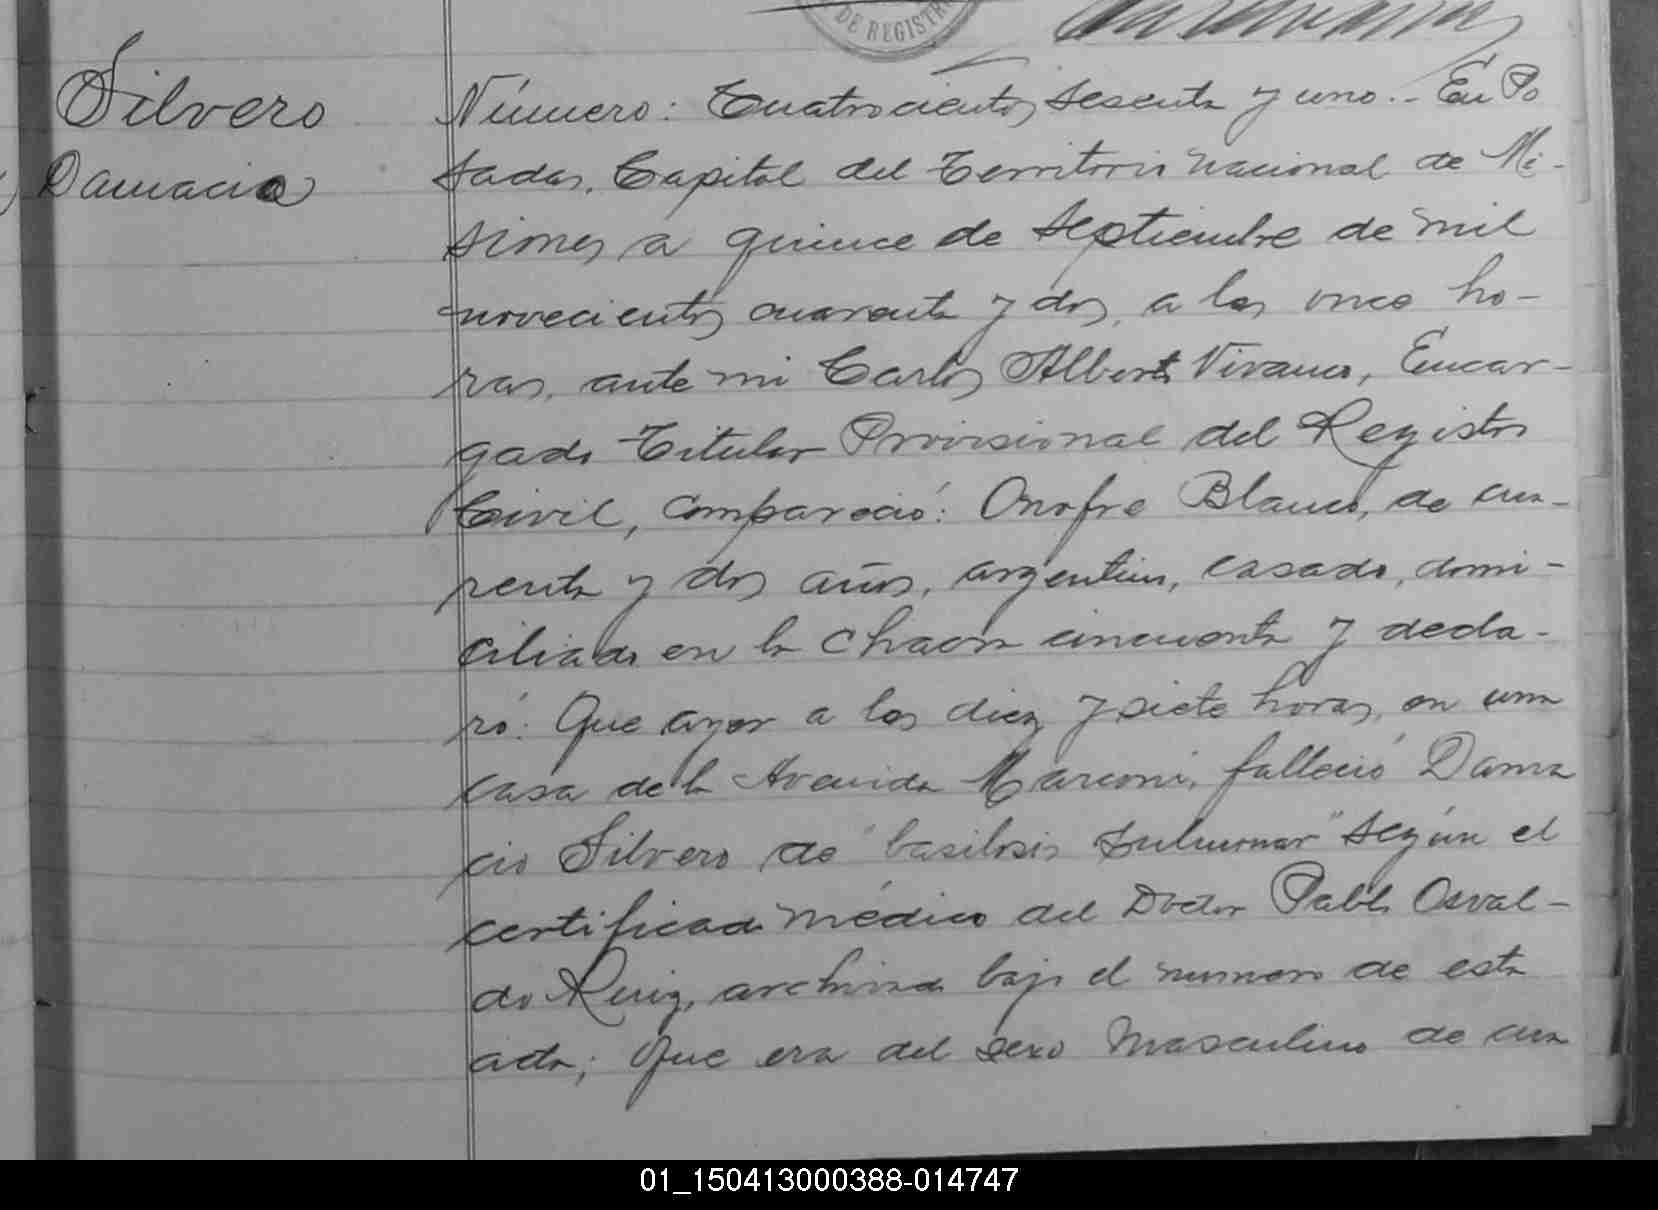 DE REGISTR
Silvero
Damacio
Número: Cuatrocientos sesenta y uno.- En Po
sadas, Capital del Territorio Nacional de Mi-
siones a quince de Septiembre de mil
novecientos cuarenta y dos, a las once ho-
ras, ante mi Carlos Alberto Vivanco, Encar-
gado Titular Provisional del Registro
Civil, compareció: Onofre Blanco, de cua-
renta y dos años, argentino, casado, domi-
ciliado en la chacra cincuenta y decla-
ró: Que ayer a las diez y siete horas, en una
casa de la Avenida Marconi, falleció Dama
cio Silvero de "basilosis pulmonar" según el
certificado médico del Doctor Pablo Osval-
do Ruiz, archivado bajo el numero de esta
acta; Que era del sexo masculino de cua
01_150413000388-014747